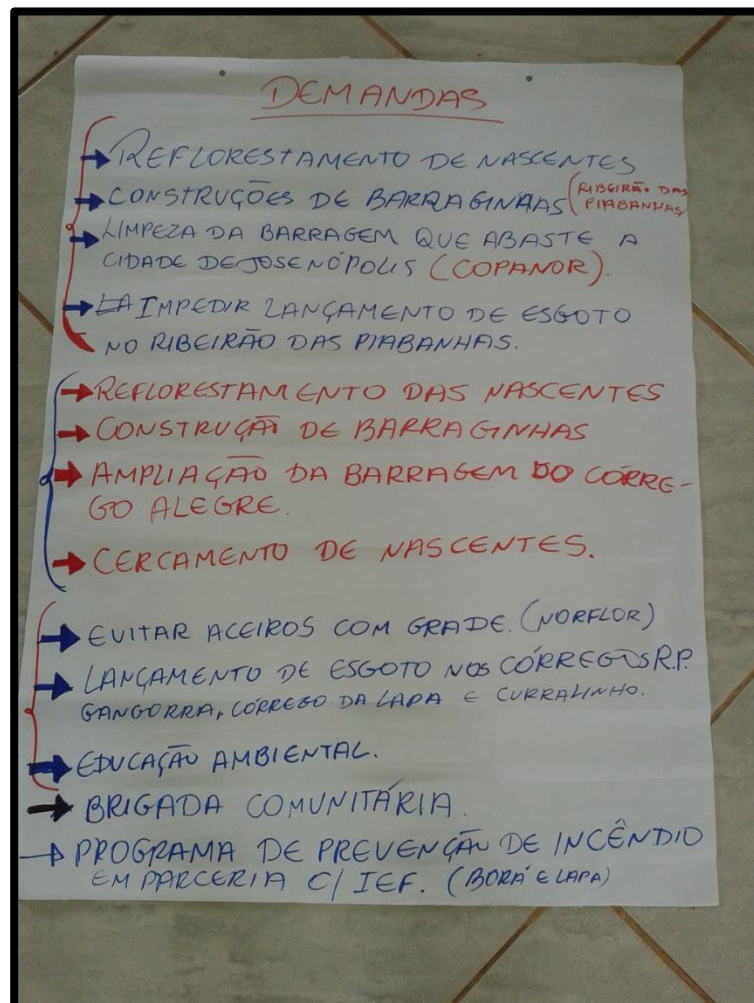 DEMANDAS
REFLORESTAMENTO DE NASCENTES
CONSTRUÇÕES DE BARRAGINHAS (RIBEIRÃO DAS PIABANHAS)
LIMPEZA DA BARRAGEM QUE ABASTE A
CIDADE DE JOSENÓPOLIS (COPANOR).
IMPEDIR LANÇAMENTO DE ESGOTO
NO RIBEIRÃO DAS PIABANHAS.
REFLORESTAMENTO DAS NASCENTES
CONSTRUÇÃO DE BARRAGINHAS
AMPLIAÇÃO DA BARRAGEM DO CÓRRE-
GO ALEGRE.
CERCAMENTO DE NASCENTES.
EVITAR ACEIROS COM GRADE. (NORFLOR)
LANÇAMENTO DE ESGOTO NOS CÓRREGOS R.P.
GANGORRA, CÓRREGO DA LAPA E CURRALINHO.
EDUCAÇÃO AMBIENTAL.
BRIGADA COMUNITÁRIA.
PROGRAMA DE PREVENÇÃO DE INCÊNDIO
EM PARCERIA C/ IEF. (BORÁ E LAPA)